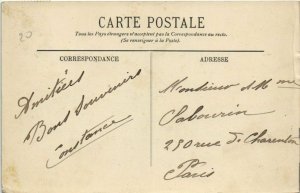 20
CARTE POSTALE
Tous les Pays étrangers n'acceptent pas la Correspondance au recto.
(Se renseigner à la Poste).
CORRESPONDANCE
Amitiés
Bons Souvenirs
Constance
ADRESSE
Monsieur & Mme
Sabourin
230 rue de Charenton
Paris